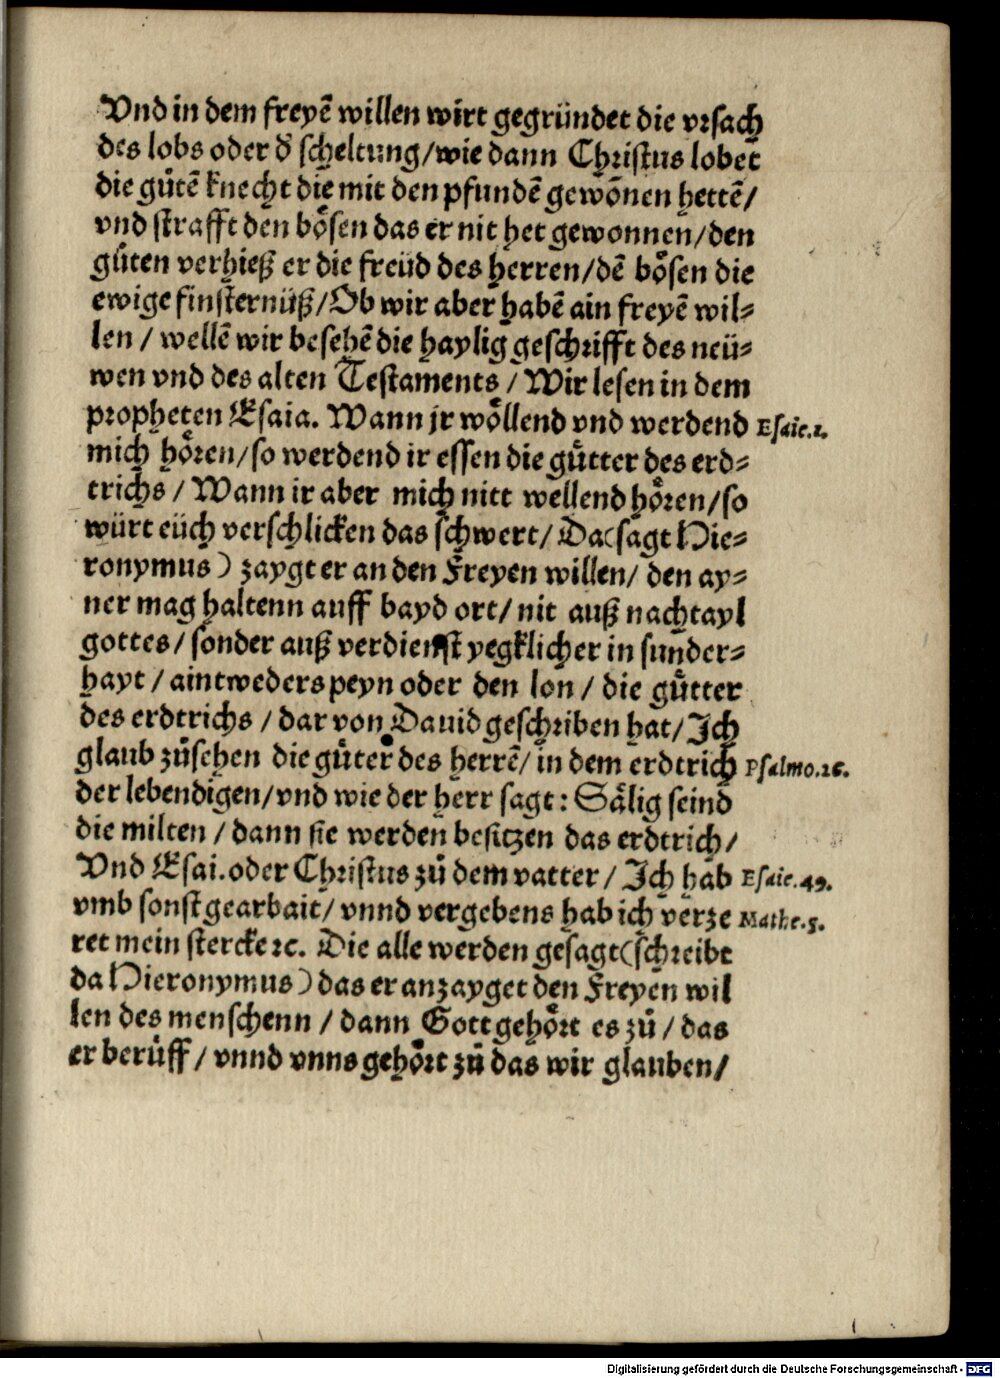 Vnd in dem freyē willen wirt gegründet die vrsach
des lobs oder d̕ scheltung/wie dann Christus lobet
die gůtē knecht die mit den pfundē gewōnen hettē/
vnd strafft den bösen das er nit het gewonnen/den
gůten verhieß er die freüd des herren/dē bösen die
ewige finsternüß/Ob wir aber habē ain freyē wil⸗
len / wellē wir besehē die haylig geschrifft des neü⸗
wen vnd des alten Testaments / Wir lesen in dem
propheten Esaia. Wann jr wöllend vnd werdend Esaie.1.
mich hören/so werdend ir essen die gůtter des erd⸗
trichs / Wann ir aber mich nitt wellend hören/so
würt eüch verschlicken das schwert/ Da(sagt Hie⸗
ronymus) zaygt er an den Freyen willen/ den ay⸗
ner mag haltenn auff bayd ort/ nit auß nachtayl
gottes / sonder auß verdienst yegklicher in sunder⸗
hayt / aintweders peyn oder den lon / die gůtter
des erdtrichs / dar von Dauid geschriben hat/ Ich
glaub zůsehen die gůter des herrē/ in dem erdtrich Psalmo.26.
der lebendigen/vnd wie der herr sagt: Sälig seind
die milten / dann sie werden besitzen das erdtrich/
Vnd Esai.oder Christus zů dem vatter / Ich hab Esaie.49.
vmb sonst gearbait/ vnnd vergebens hab ich verze Mathe.5.
ret mein stercke ꝛc. Die alle werden gesagt(schreibt
da Hieronymus) das er anzayget den Freyen wil
len des menschenn / dann Gott gehört es zů / das
er berůff / vnnd vnns gehört zů das wir glauben/
Digitalisierung gefördert durch die Deutsche Forschungsgemeinschaft - DFG